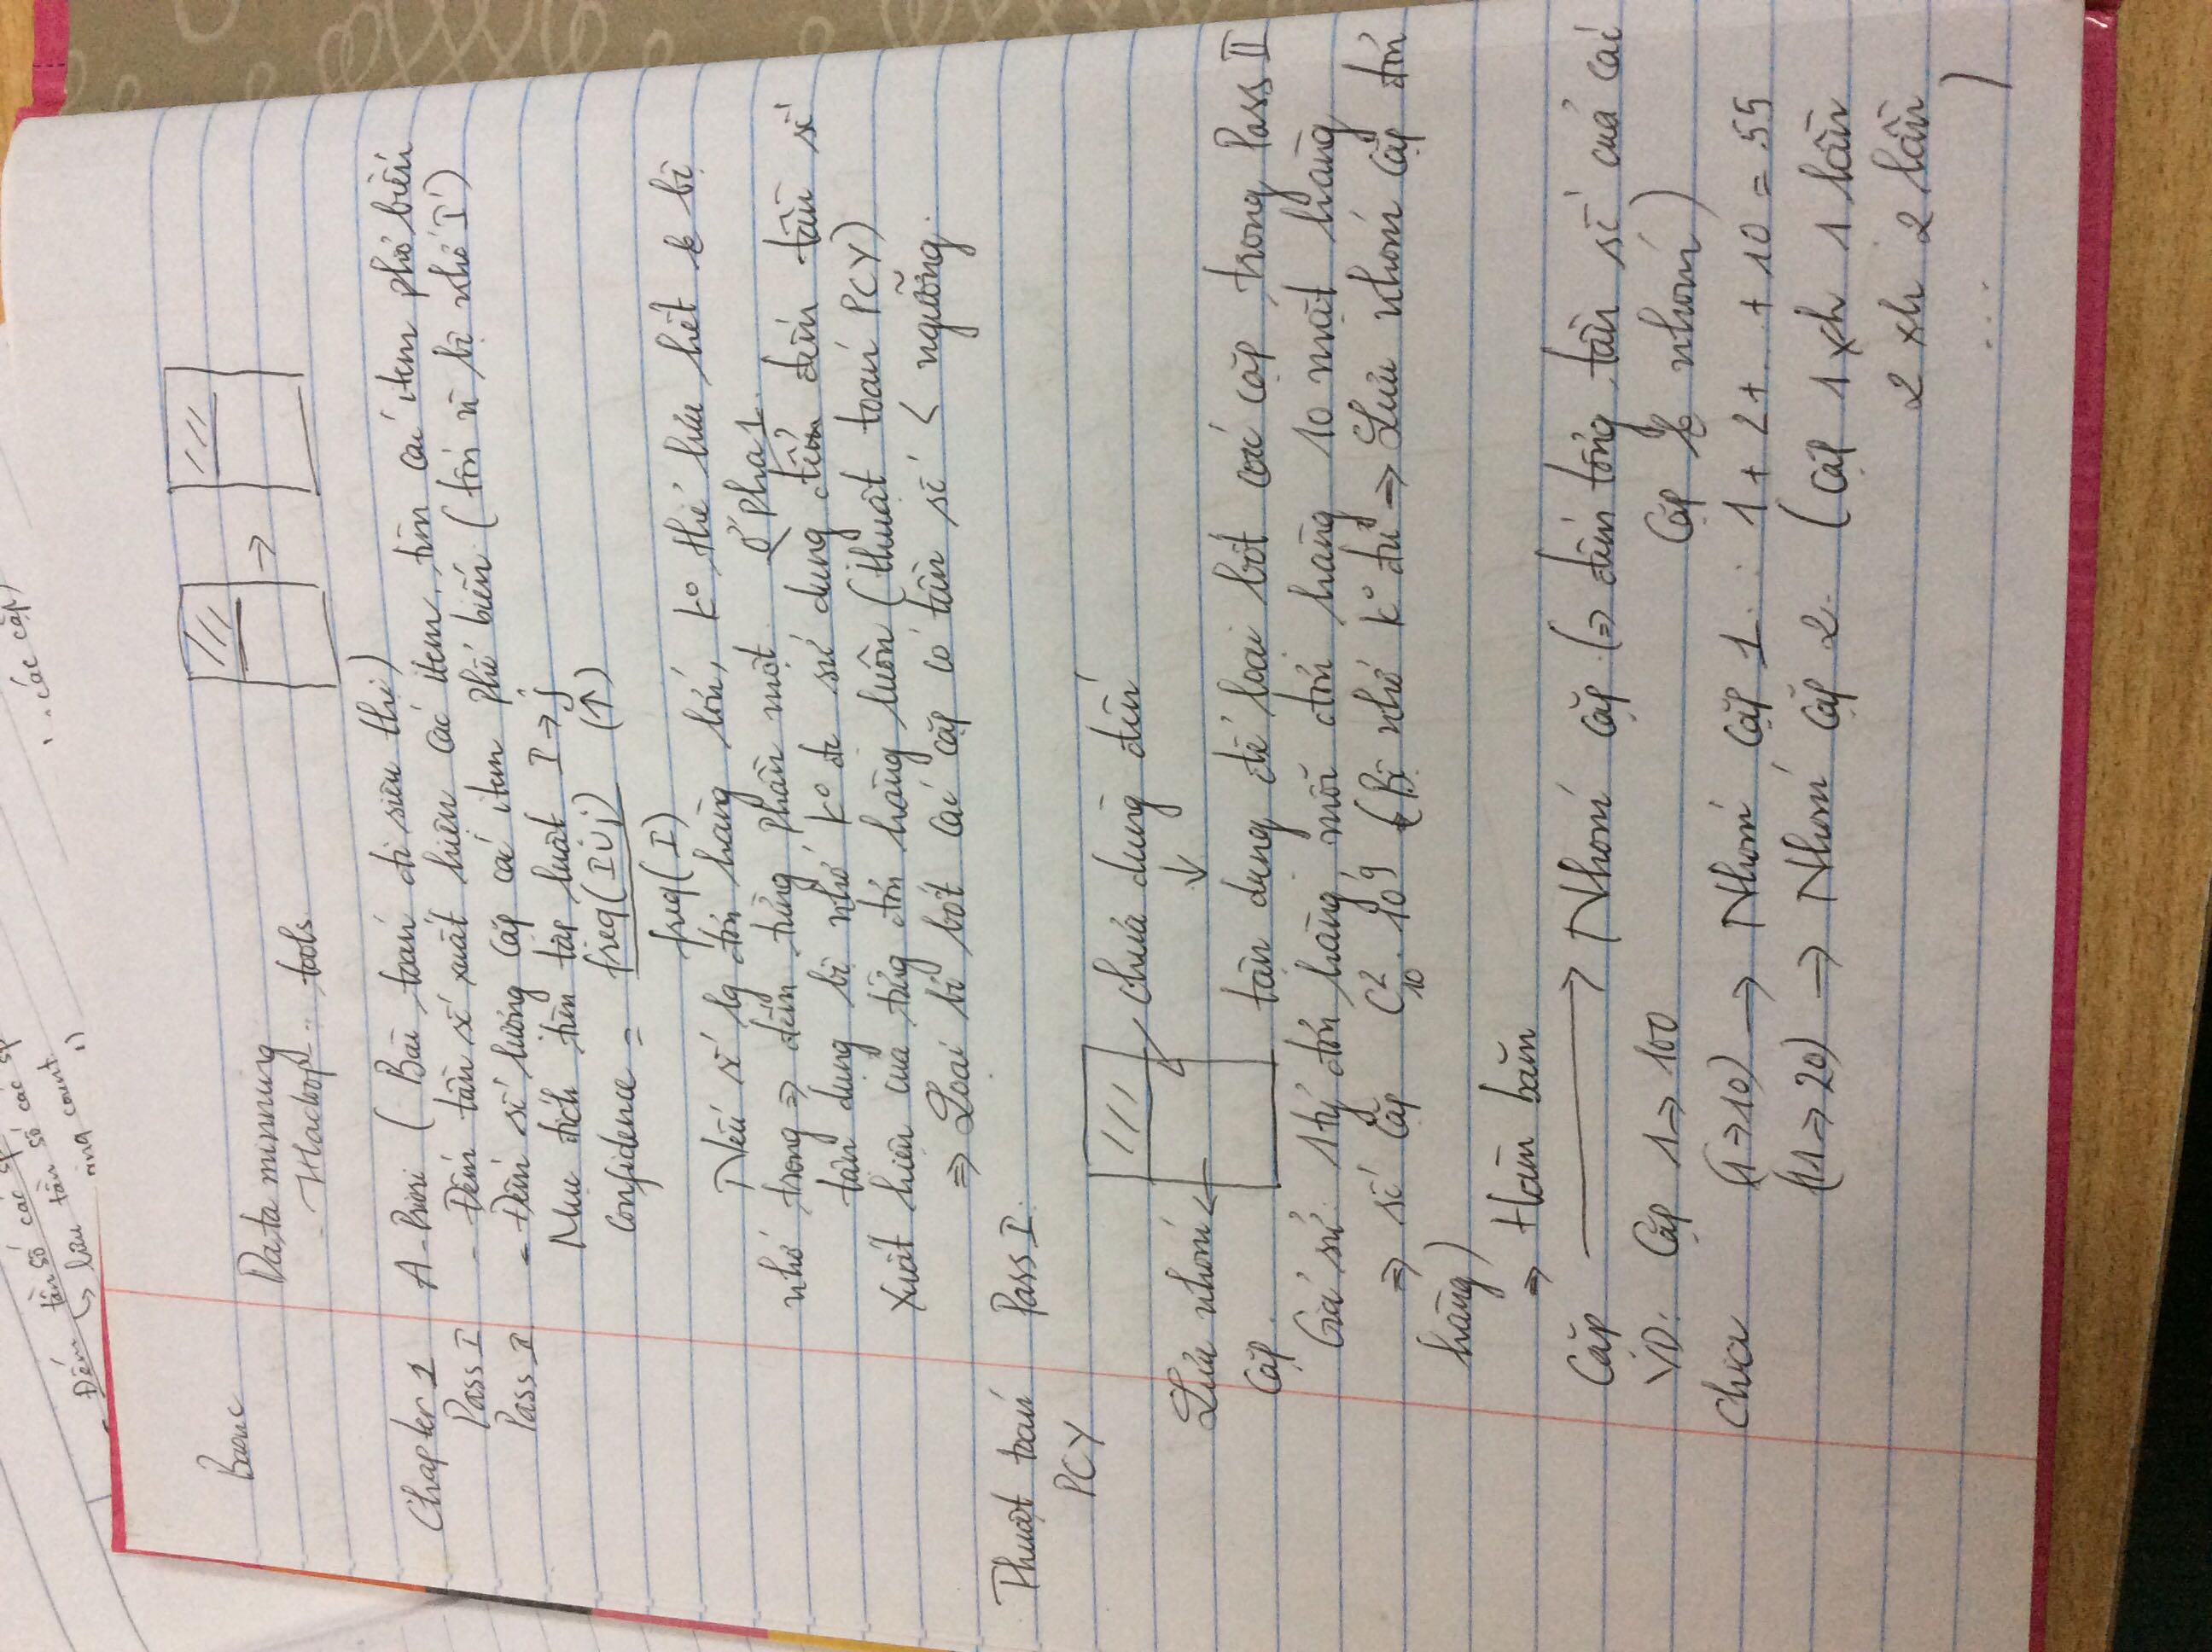 - Đếm tần số các sp
↳ lưu tần số các sp
count
các cặp)
Data minnung
- Hadoop - tools
Chapter 1 A-Priori (Bài toán đi siêu thị)
Pass I - Đếm tần số xuất hiện các item, tìm các item phổ biến
Pass II - Đếm số lượng cặp các item phổ biến (tốn n bộ nhớ I)
Mục đích tìm tập luật I → j
Confidence = freq(I∪j) (↑)
freq(I)
Nếu số lg đơn hàng lớn, k° thể lưu hết ở bộ
nhớ trong ⇒ đếm từng phần một. Ở pha 1
tận dụng bộ nhớ k° đc sử dụng đếm tần số
xuất hiện của từng đơn hàng luôn (thuật toán PCY)
⇒ Loại bỏ bớt các cặp có tần số < ngưỡng.
Thuật toán Pass I.
PCY
chưa dùng đến
Lưu nhóm ← ↓
cặp. tận dụng để loại bớt các cặp trong Pass II
Giả sử: 1 tỷ đơn hàng, mỗi đơn hàng 10 mặt hàng
⇒ số cặp C²₁₀ . 10⁹ (Bộ nhớ k° đủ ⇒ Lưu nhóm cặp đơn
hàng)
⇒ Hàm băm
Cặp → Nhóm cặp (⇒ đếm tổng tần số của các
VD: Cặp 1 → 100 cặp ở nhóm)
Chia (1→10) → Nhóm cặp 1 : 1 + 2 + ... + 10 = 55
(11→20) → Nhóm cặp 2. (cặp 1 xh 1 lần
2 xh 2 lần
... )